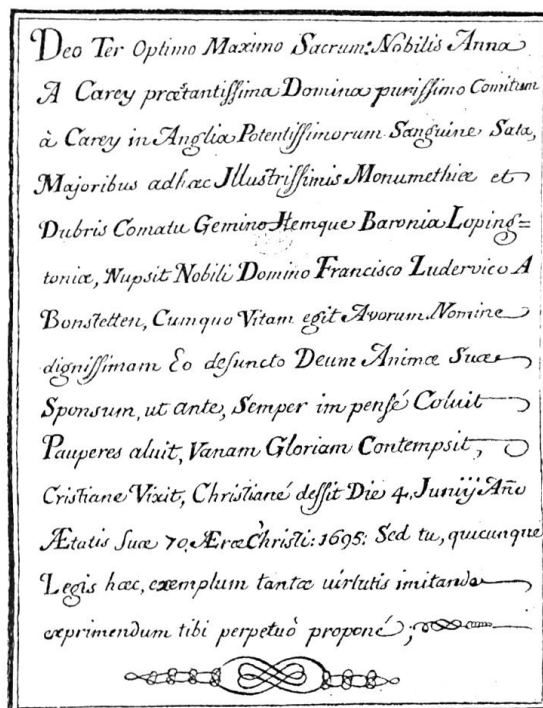 Deo Ter Optimo Maximo Sacrum: Nobilis Anna
A Carey præstantissima Domina purissimo Comitum
à Carey in Anglia Potentissimorum Sanguine Sata,
Majoribus adhæc Jllustrissimis Monumethiæ et
Dubris Comatu Gemino Jtemque Baronia Loping=
toniæ, Nupsit Nobili Domino Francisco Ludervico A
Bonstetten, Cumquo Vitam egit Avorum Nomine
dignissimam Eo defuncto Deum Animæ Suæ
Sponsum, ut ante, Semper impensé Coluit
Pauperes aluit, Vanam Gloriam Contempsit,
Cristiane Vixit, Christiané dessit Die 4. Junÿ Año
Ætatis suæ 70. Æræ Christi: 1695: Sed tu, quicunque
Legis hæc, exemplum tantæ uirtutis imitanda
exprimendum tibi perpetuò proponé;